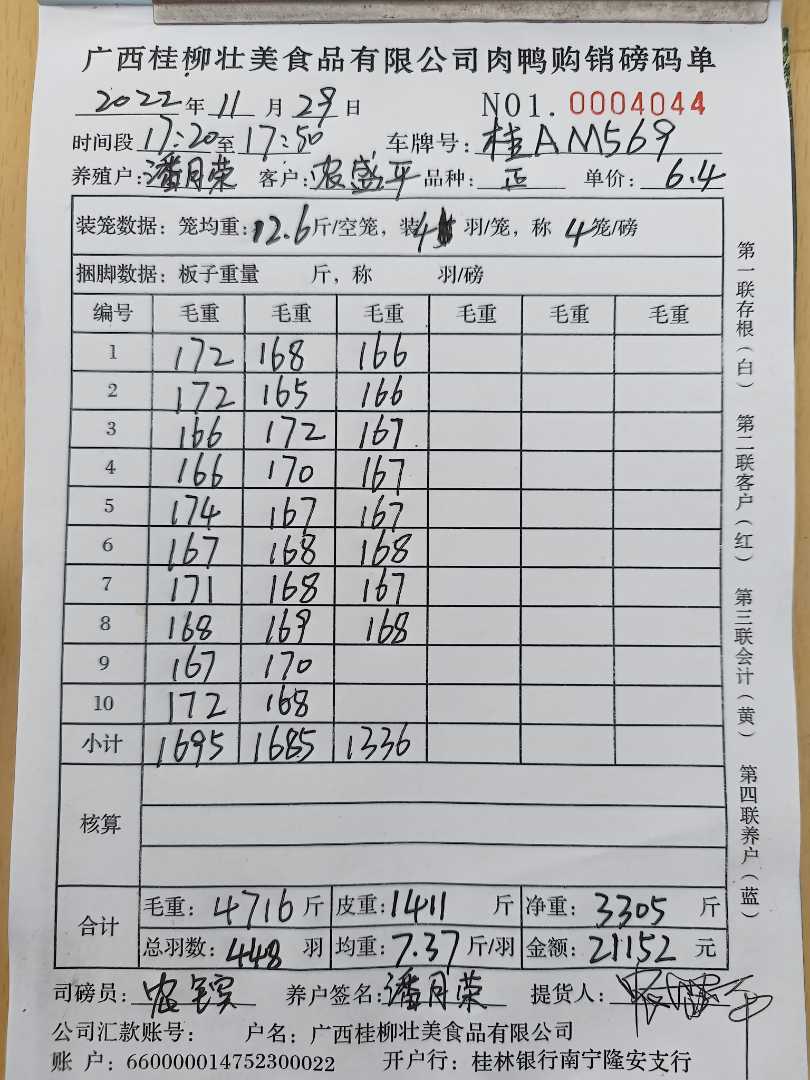 广西桂柳壮美食品有限公司肉鸭购销磅码单
2022年11月29日 NO1. 0004044
时间段17:20至17:50 车牌号:桂AM569
养殖户:潘月荣 客户:农盛平 品种:正 单价:6.4
装笼数据:笼均重:12.6斤/空笼,装4 羽/笼,称 4笼/磅
捆脚数据:板子重量 斤,称 羽/磅
编号 毛重 毛重 毛重 毛重 毛重 毛重
1 172 168 166
2 172 165 166
3 166 172 167
4 166 170 167
5 174 167 167
6 167 168 168
7 171 168 167
8 168 169 168
9 167 170
10 172 168
小计 1695 1685 1336
核算
合计 毛重:4716斤 皮重:1411斤 净重:3305斤
总羽数:448羽 均重:7.37斤/羽 金额:21152元
司磅员:农 养户签名:潘月荣 提货人:
公司汇款账号: 户名:广西桂柳壮美食品有限公司
账 户:660000014752300022 开户行:桂林银行南宁隆安支行
第一联存根(白)
第二联客户(红)
第三联会计(黄)
第四联养户(蓝)